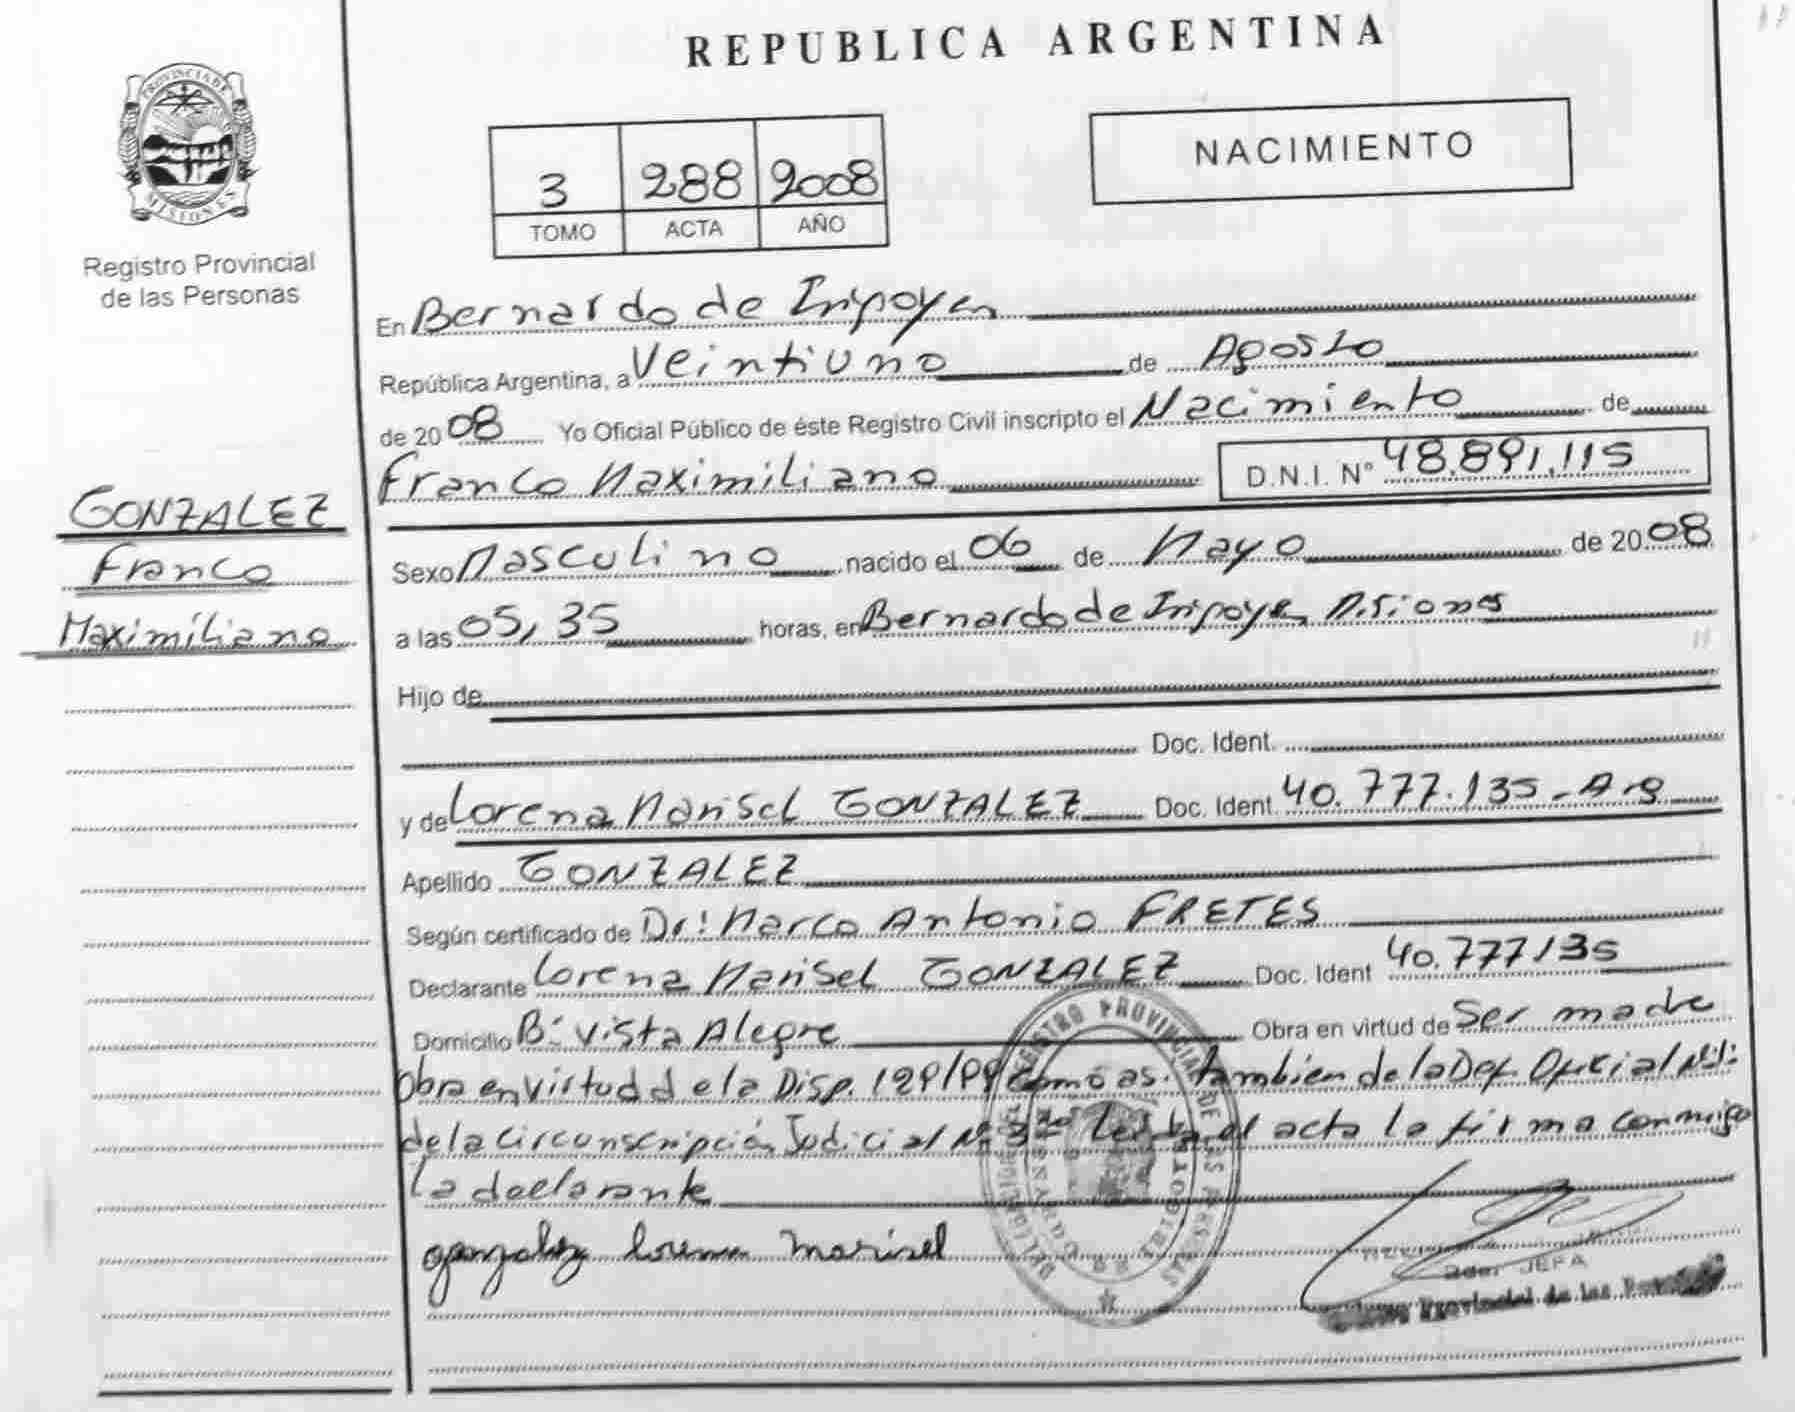 REPUBLICA ARGENTINA
PROVINCIA DE
MISIONES
Registro Provincial
de las Personas
NACIMIENTO
3 288 2008
TOMO ACTA AÑO
En Bernardo de Iripoyen
República Argentina, a Veintiuno de Agosto
de 2008 Yo Oficial Público de éste Registro Civil inscripto el Nacimiento de
Franco Maximiliano D.N.I. N° 48.891.115
GONZALEZ
Franco
Maximiliano
Sexo Masculino nacido el 06 de Mayo de 2008
a las 05,35 horas, en Bernardo de Iripoyen Misiones
Hijo de
Doc. Ident.
y de Lorena Marisel GONZALEZ Doc. Ident. 40.777.135-Arg
Apellido GONZALEZ
Según certificado de Dr: Marco Antonio FRETES
Declarante Lorena Marisel GONZALEZ Doc. Ident 40.777135
Domicilio B: Vista Alegre Obra en virtud de Ser madre
Obra en virtud de la Disp. como as. también de la Def. Oficial
de la Circunscripción Judicial N° 3 el acta la firma conmigo
la declarante
gonzalez lorena marisel
REGISTRO PROVINCIAL DE LAS PERSONAS
JEFA
Provincial de las